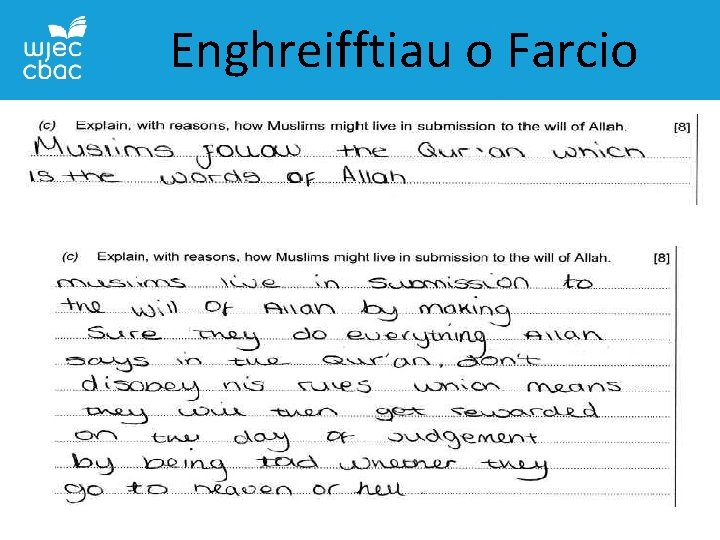 wjec
cbac
Enghreifftiau o Farcio
(c) Explain, with reasons, how Muslims might live in submission to the will of Allah. [8]
Muslims follow the Qur'an which
is the words of Allah
(c) Explain, with reasons, how Muslims might live in submission to the will of Allah. [8]
muslims live in submission to
the will of Allah by making
sure they do everything Allah
says in the Qur'an, don't
disobey his rules which means
they will then get rewarded
on the day of Judgement
by being told whether they
go to heaven or hell.